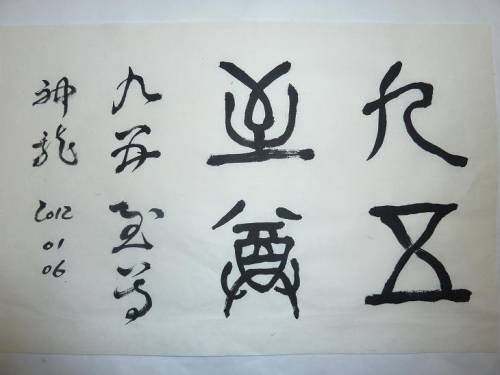 九五
至尊
九五至尊
神龍
2012
01
06